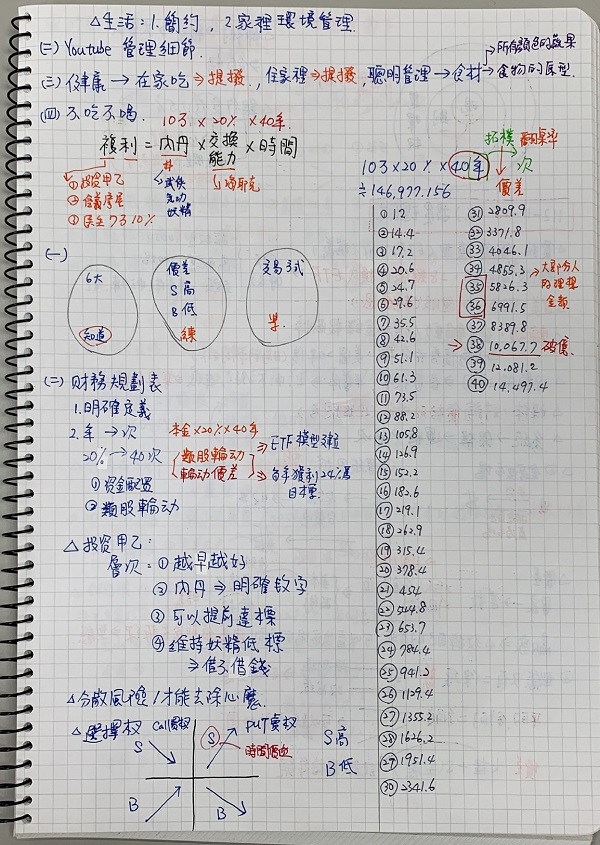 △生活：1.簡約，2.家裡環境管理.
(二) Youtube 管理細節.
(三) 健康 → 在家吃 ⇒ 提撥，住家裡 ⇒ 提撥，聰明管理 → 食材 → 食物的原型.
所有顏色的蔬果
(四) 不吃不喝. 10萬 × 20% × 40年
複利 = 內丹 × 交換能力 × 時間
①投資甲乙
②
③
武俠
氣功
妖精
拓樸 翻桌率
10萬 × 20% × 40年 次
≒ 146,977.156
價差
(一)
6大
知道
價差
S 高
B 低
練
交易方式
(二) 財務規劃表
1.明確定義
2. 年 → 次
20% → 40次
①資金配置
②類股輪动
本金 × 20% × 40年
類股輪动
輪动價差
⇒ ETF 模型
⇒ 每年獲利24%為目標.
△投資甲乙：
層次：①越早越好
②內丹 ⇒ 明確数字
③可以提前達標
④維持妖精低標
⇒ 借不借錢
△分散風险/才能去除心魔.
△選擇权 Call買权 PUT賣权
S
S
時間價值
B
B
S 高
B 低
① 12
② 14.4
③ 17.2
④ 20.6
⑤ 24.7
⑥ 29.6
⑦ 35.5
⑧ 42.6
⑨ 51.1
⑩ 61.3
⑪ 73.5
⑫ 88.2
⑬ 105.8
⑭ 126.9
⑮ 152.2
⑯ 182.6
⑰ 219.1
⑱ 262.9
⑲ 315.4
⑳ 378.4
㉑ 454
㉒ 544.8
㉓ 653.7
㉔ 784.4
㉕ 941.2
㉖ 1129.4
㉗ 1355.2
㉘ 1626.2
㉙ 1951.4
㉚ 2341.6
㉛ 2809.9
㉜ 3371.8
㉝ 4046.1
㉞ 4855.3
㉟ 5826.3
㊱ 6991.5
㊲ 8389.8
㊳ 10,067.7 破億.
㊴ 12,081.2
㊵ 14,497.4
大部分人的理想金額